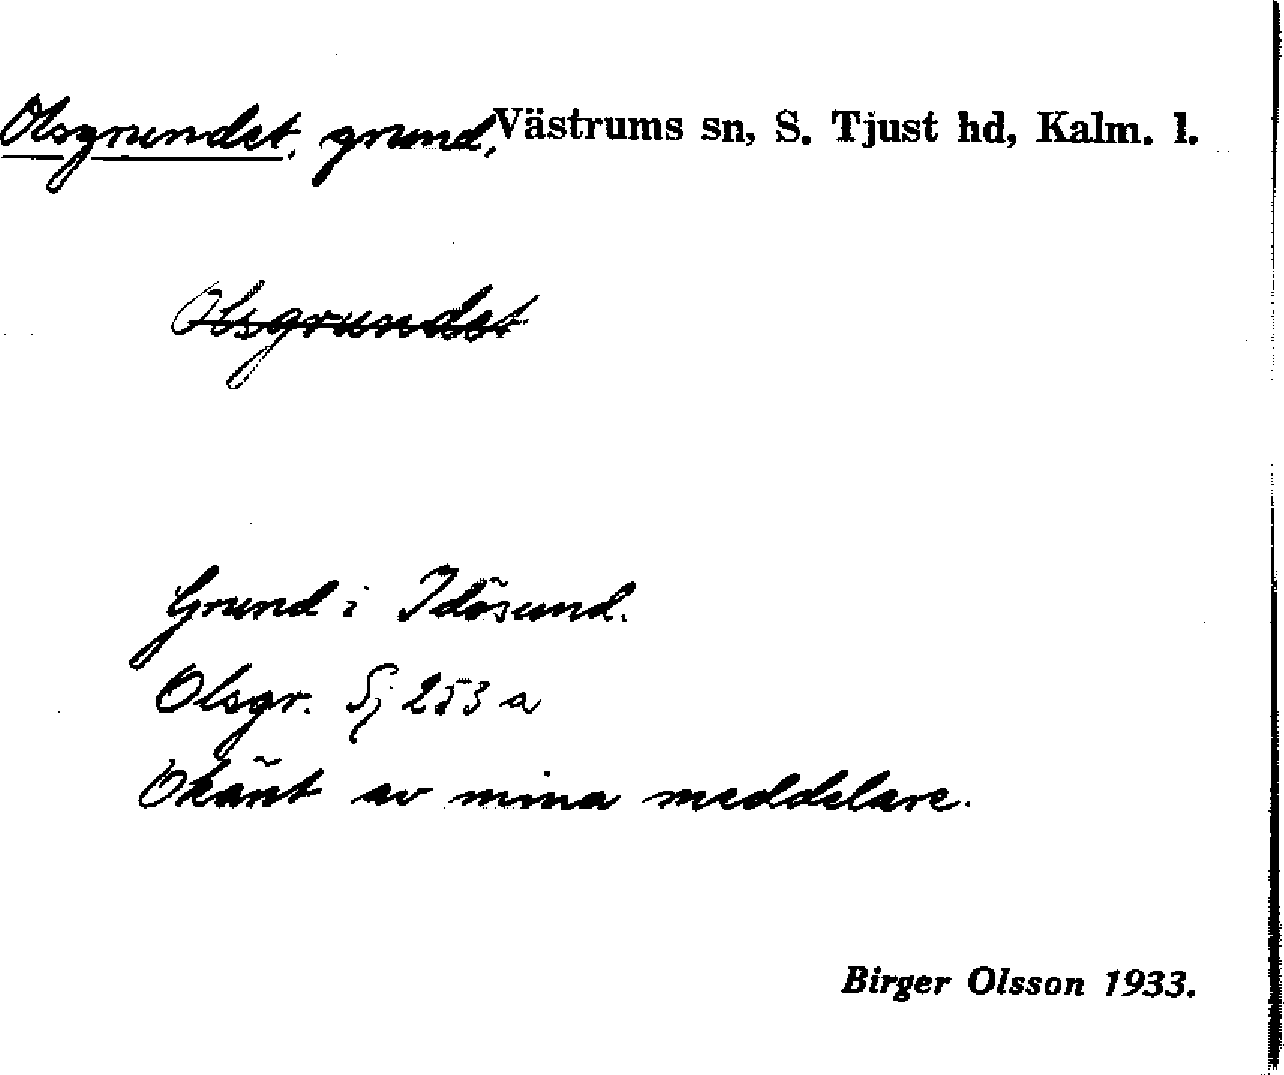 Olsgrundet, grund, Västrums sn, S. Tjust hd, Kalm. l.
Olsgrundet
Grund i Idösund.
Olsgr. Sj 253 a
Okänt av mina meddelare.
Birger Olsson 1933.